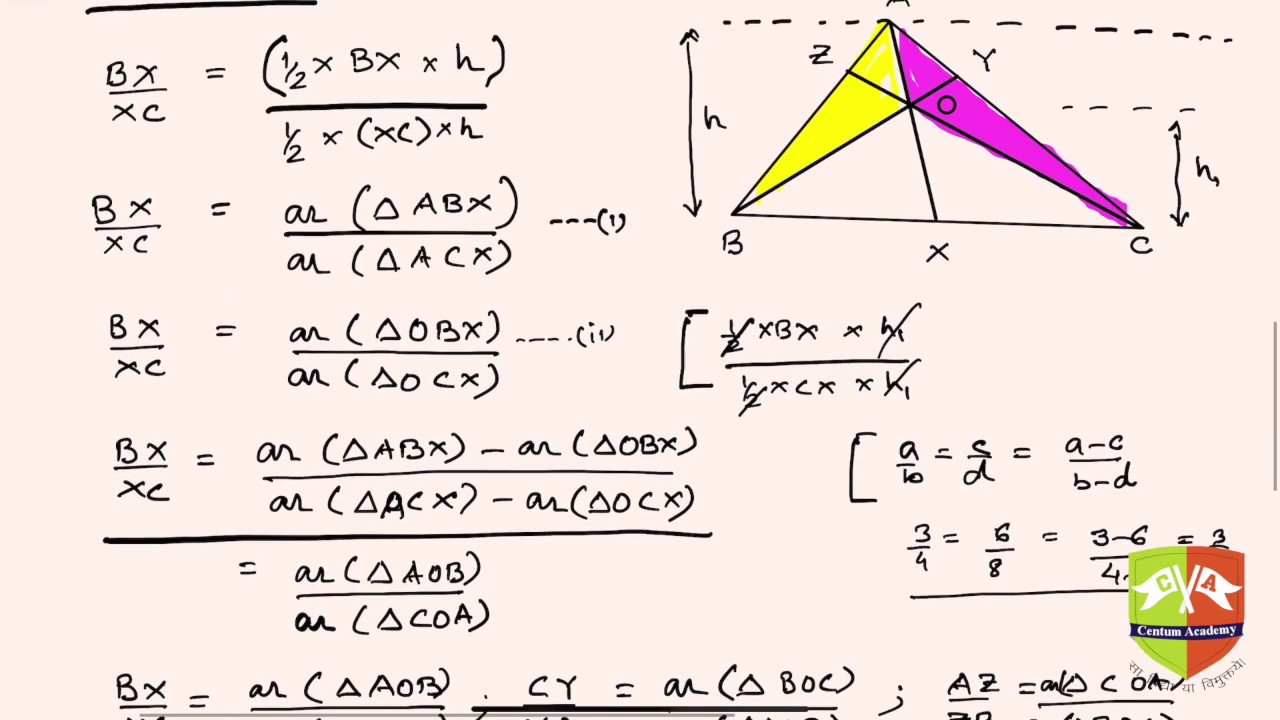 BX/XC = (1/2 × BX × h) / 1/2 × (XC) × h
BX/XC = ar (△ABX) / ar (△ACX) ---(i)
BX/XC = ar (△OBX) / ar (△OCX) ----(ii)
[ 1/2 × BX × h₁ / 1/2 × CX × h₁
BX/XC = ar (△ABX) – ar (△OBX) / ar (△ACX) – ar (△OCX)
[ a/b = c/d = a-c/b-d
3/4 = 6/8 = 3-6/4- = 3
= ar (△AOB) / ar (△COA)
BX = ar (△AOB) ; CY = ar (△BOC) ; AZ = ar (△COA)
A
Z
Y
O
h
h₁
B
X
C
C A
Centum Academy